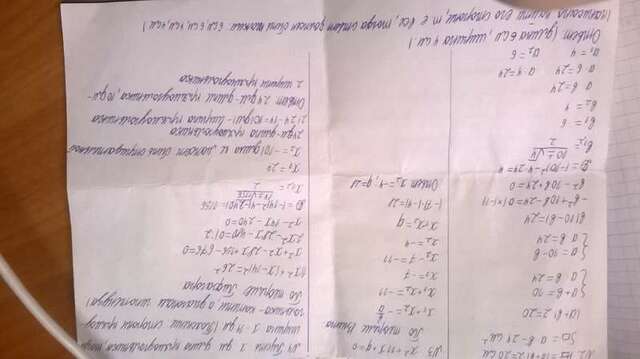 N2 P=(a+b)·2=20см
S=a·b=24см²
(a+b)·2=20
{a+b=10
a·b=24
{a=10-b
a·b=24
b(10-b)=24
-b²+10b-24=0|×(-1)
b²-10b+24=0
D=(-10)²-4·24=4
b₁,₂=10±√4/2
b₁=6
b₂=4
a·b=24
a·6=24 a·4=24
a₁=4 a₂=6
Ответ: (длина 6см, ширина 4см.)
(написано найти его стороны, т.е все, тогда ответ должен быть таким: 6см, 6см, 4см, 4см.)
N3 x²+11x+q=0
По теореме Виета
x₁+x₂=-b/a
x₁+x₂=-11
x₁=-7
x₂-7=-11
x₂=-4
x₁·x₂=q
(-7)·(-4)=28
Ответ x₂=-4; q=28
N4 Пусть x дм длина прямоугольника, тогда
ширина x-14дм. (Пояснение: стороны прямоу-
гольника-катеты, а диагональ гипотенуза)
По теореме Пифагора
x²+(x-14)²=26²
x²+x²-28x+196-676=0
2x²-28x-480=0|:2
x²-14x-240=0
D=(-14)²-4(-240)=1156
x₁,₂=14±√1156/2
x₁=24
x₂=-10(длина не может быть отрицательной
24дм-длина прямоугольника
2)24-14=10(дм)-ширина прямоугольника
Ответ: 24дм-длина прямоугольника, 10дм-
ширина прямоугольника